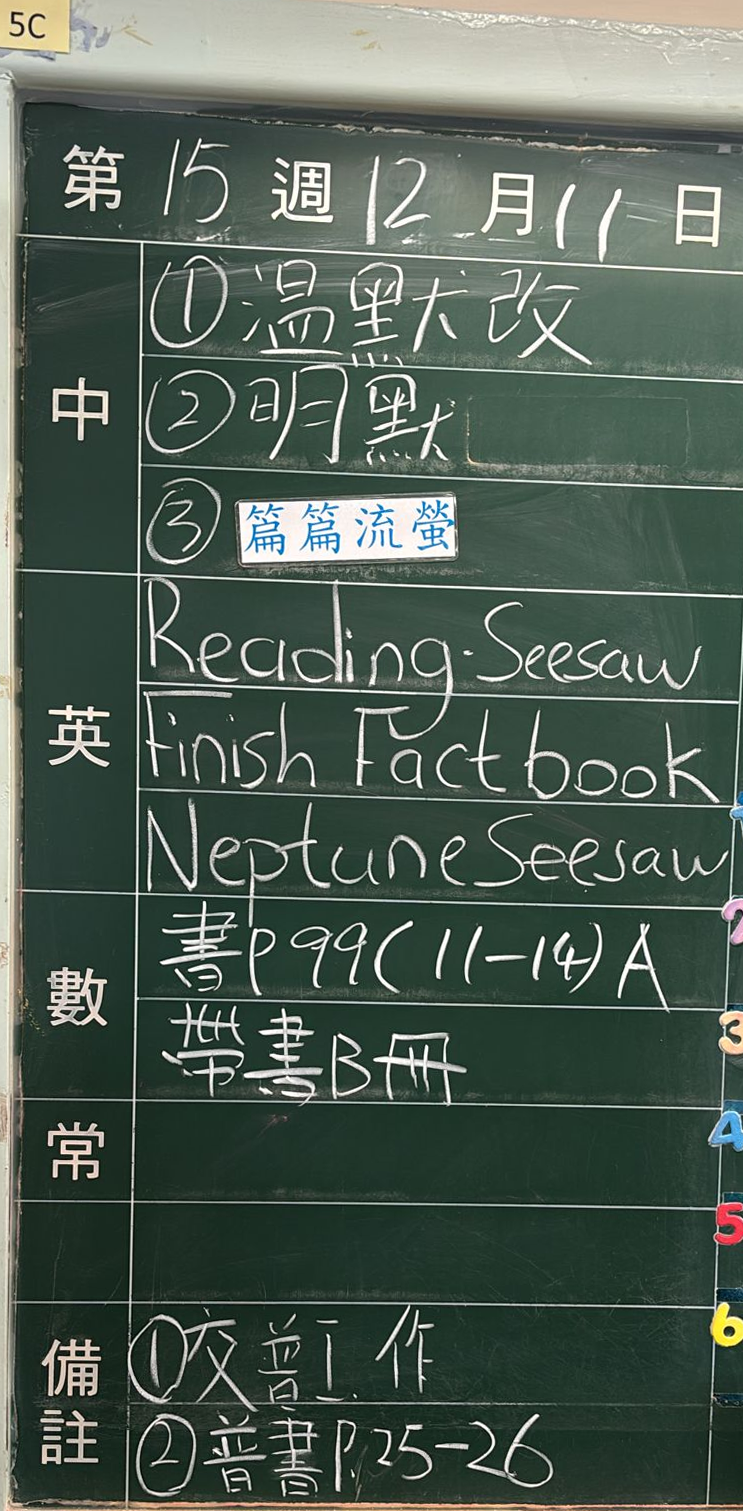 5C
第 15 週 12 月 11 日
中
①溫默改
②明默
③ 篇篇流螢
英
Reading·Seesaw
Finish Factbook
Neptune Seesaw
數
書p99(11-14)A
帶書B冊
常
備註
①交普工作
②普書P.25-26
2
3
4
5
6